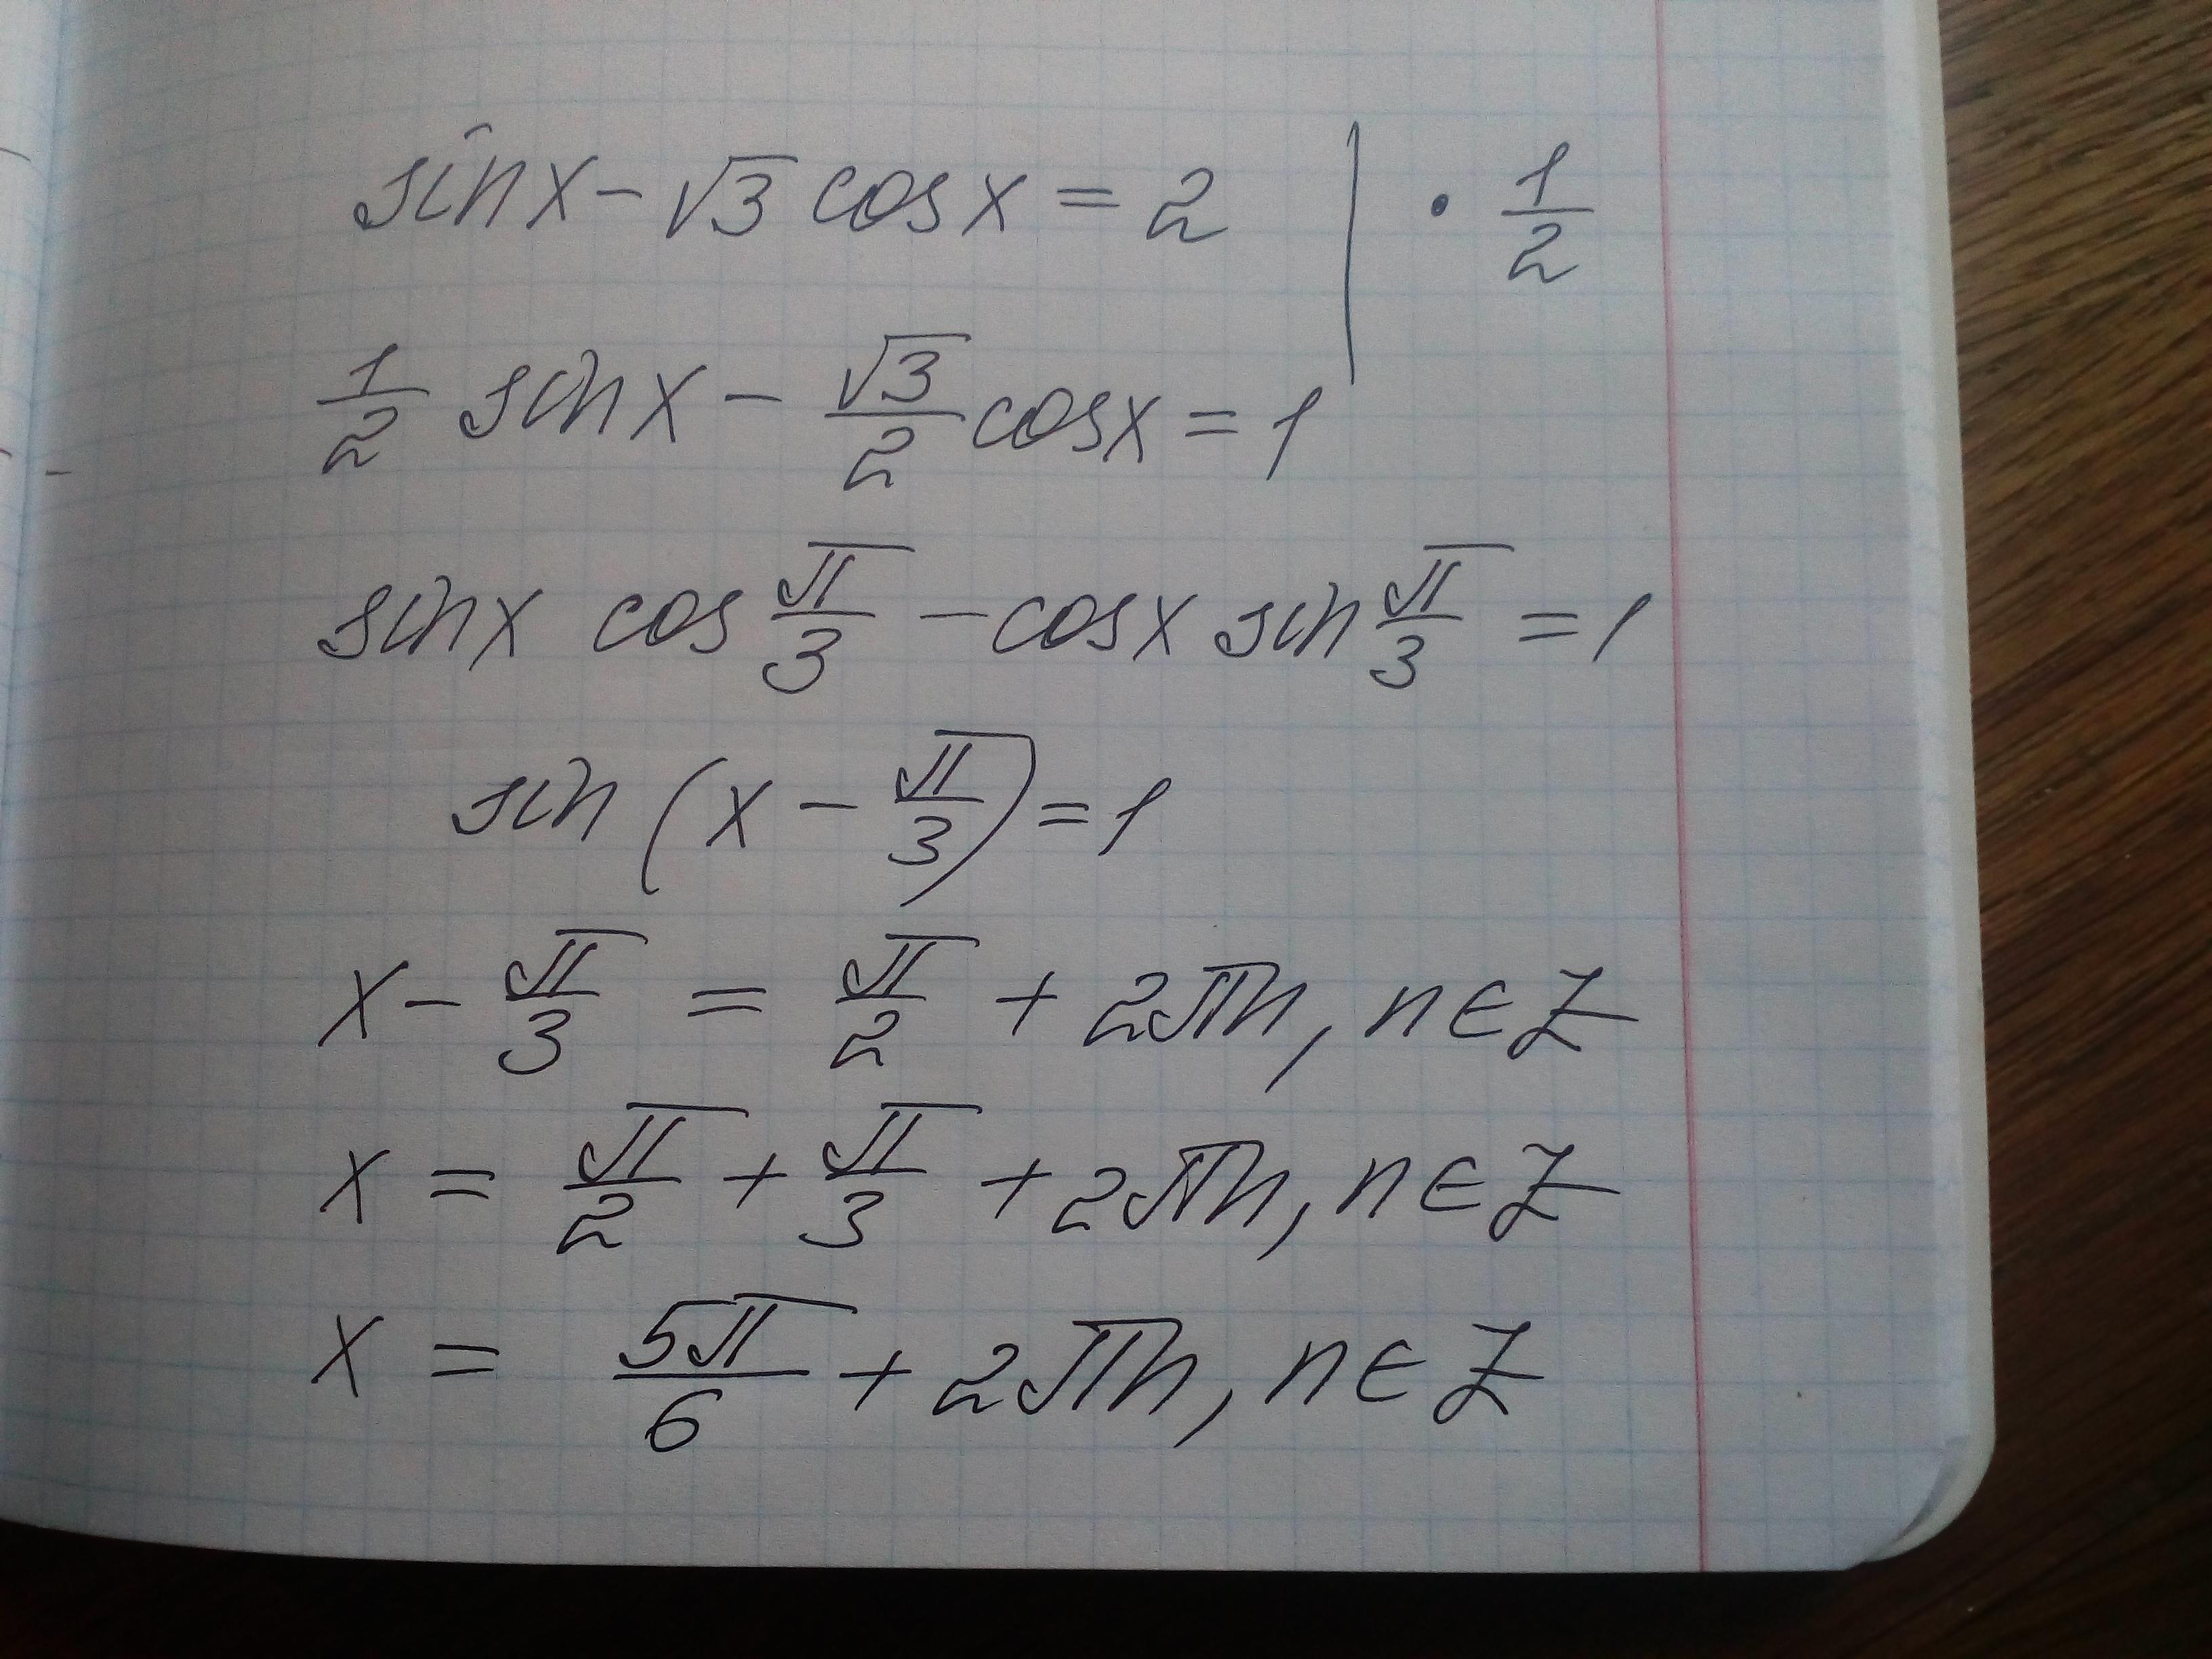 sin x - √3 cos x = 2 | · 1/2
1/2 sin x - √3/2 cos x = 1
sin x cos π/3 - cos x sin π/3 = 1
sin (x - π/3) = 1
x - π/3 = π/2 + 2πn, n ∈ Z
x = π/2 + π/3 + 2πn, n ∈ Z
x = 5π/6 + 2πn, n ∈ Z